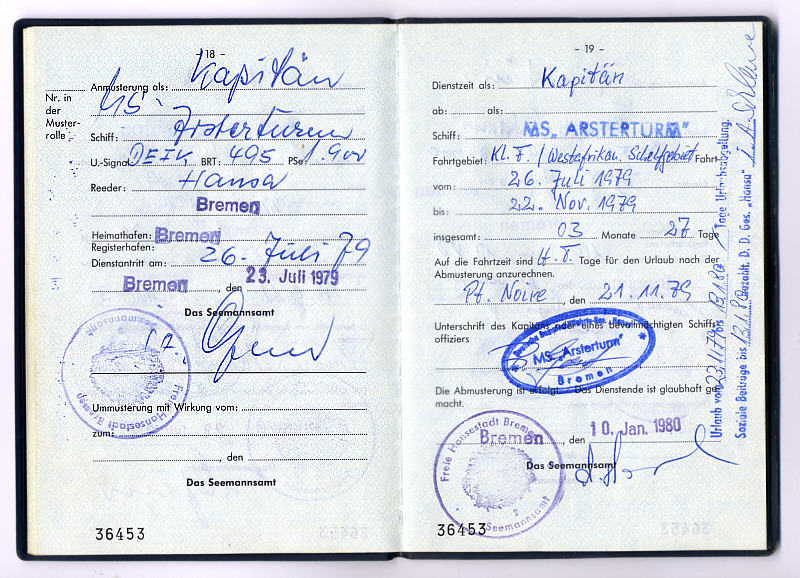 - 18 -
Anmusterung als: Kapitän
Nr. in
der
Muster-
rolle
MS.
Schiff: Arsterturm
U.-Signal DEIK BRT: 495 PSe: 1.900
Reeder: Hansa
Bremen
Heimathafen: Bremen
Registerhafen:
Dienstantritt am: 26. Juli 79
Bremen, den 23. Juli 1979
Das Seemannsamt
Freie Hansestadt Bremen
Seemannsamt
Ummusterung mit Wirkung vom:
zum:
, den
Das Seemannsamt
36453
- 19 -
Dienstzeit als: Kapitän
ab: als:
Schiff: MS. „ARSTERTURM"
Fahrtgebiet: Kl. F. / Westafrikan. Schelfgebiet Fahrt
vom: 26. Juli 1979
bis: 22. Nov. 1979
insgesamt: 03 Monate 27 Tage
Auf die Fahrtzeit sind lt. T. Tage für den Urlaub nach der
Abmusterung anzurechnen.
Pt. Noire, den 21.11.79
Unterschrift des Kapitäns oder eines bevollmächtigten Schiffs-
offiziers
MS. „Arsterturm"
Bremen
Die Abmusterung ist erfolgt. Das Dienstende ist glaubhaft ge-
macht.
Bremen, den 10. Jan. 1980
Das Seemannsamt
Freie Hansestadt Bremen
2
Seemannsamt
36453
Urlaub vom 23.11.79 bis Tage Urlaubsabgeltung.
Soziale Beiträge bis bezahlt. D. D. Ges. „Hansa"